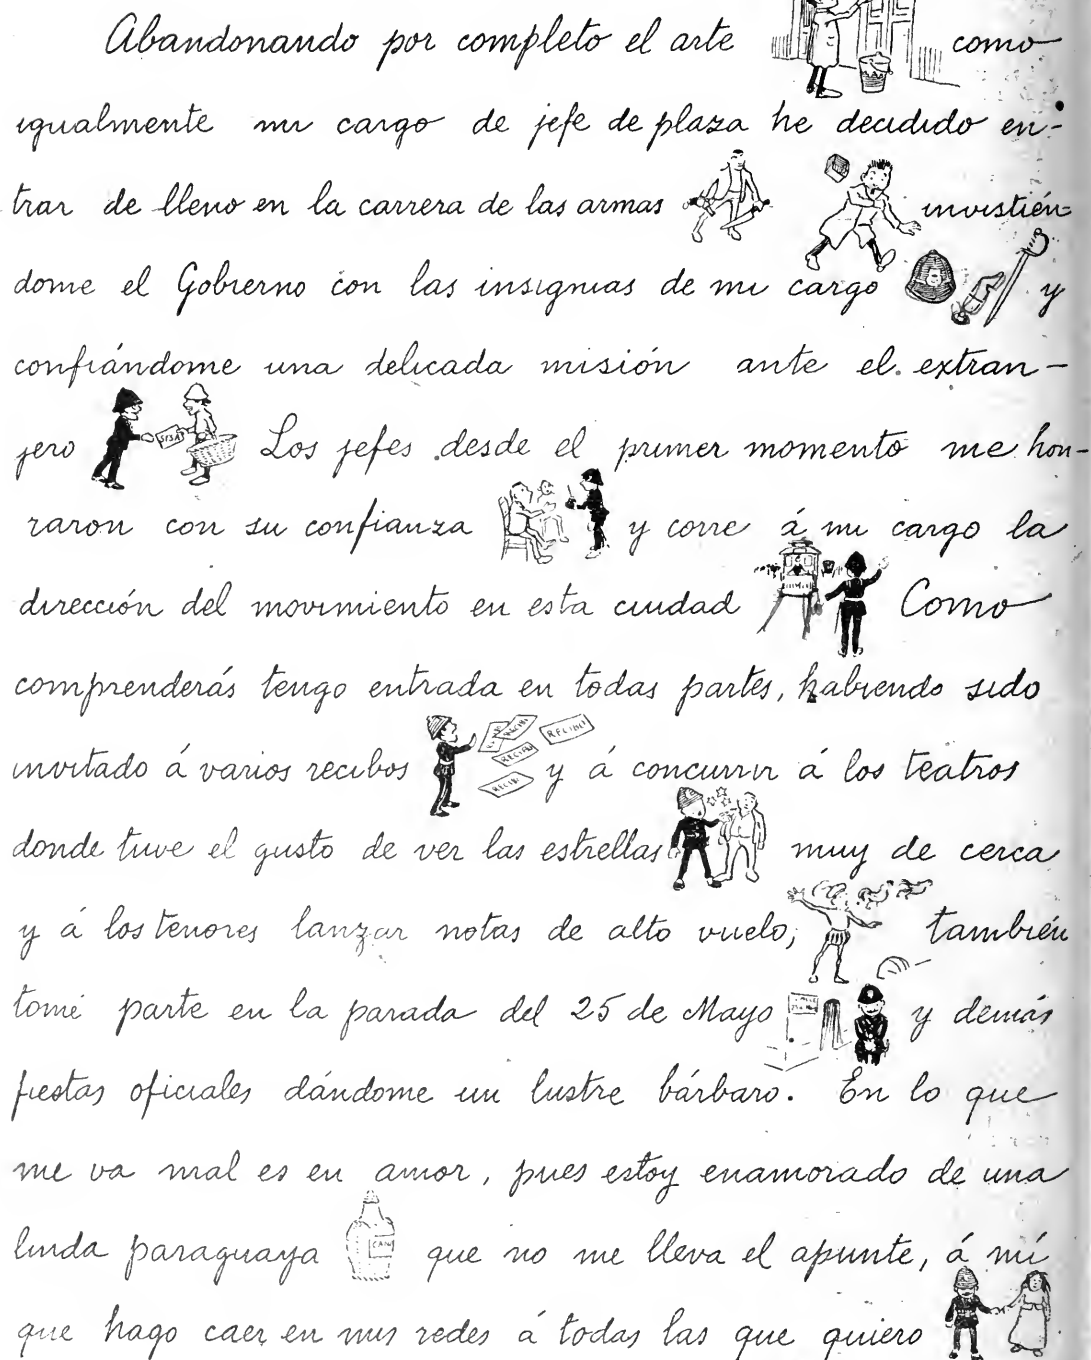 Abandonando por completo el arte como
igualmente mi cargo de jefe de plaza he decidido en-
trar de lleno en la carrera de las armas invistién-
dome el Gobierno con las insignias de mi cargo y
confiándome una delicada misión ante el extran-
jero SISA Los jefes desde el primer momento me hon-
raron con su confianza y corre á mi cargo la
dirección del movimiento en esta ciudad Como
comprenderás tengo entrada en todas partes, habiendo sido
invitado á varios recibos RECIBO y á concurrir á los teatros
donde tuve el gusto de ver las estrellas muy de cerca
y á los tenores lanzar notas de alto vuelo; también
tomé parte en la parada del 25 de Mayo y demás
fiestas oficiales dándome un lustre bárbaro. En lo que
me va mal es en amor, pues estoy enamorado de una
linda paraguaya CAÑ que no me lleva el apunte, á mí
que hago caer en mis redes á todas las que quiero